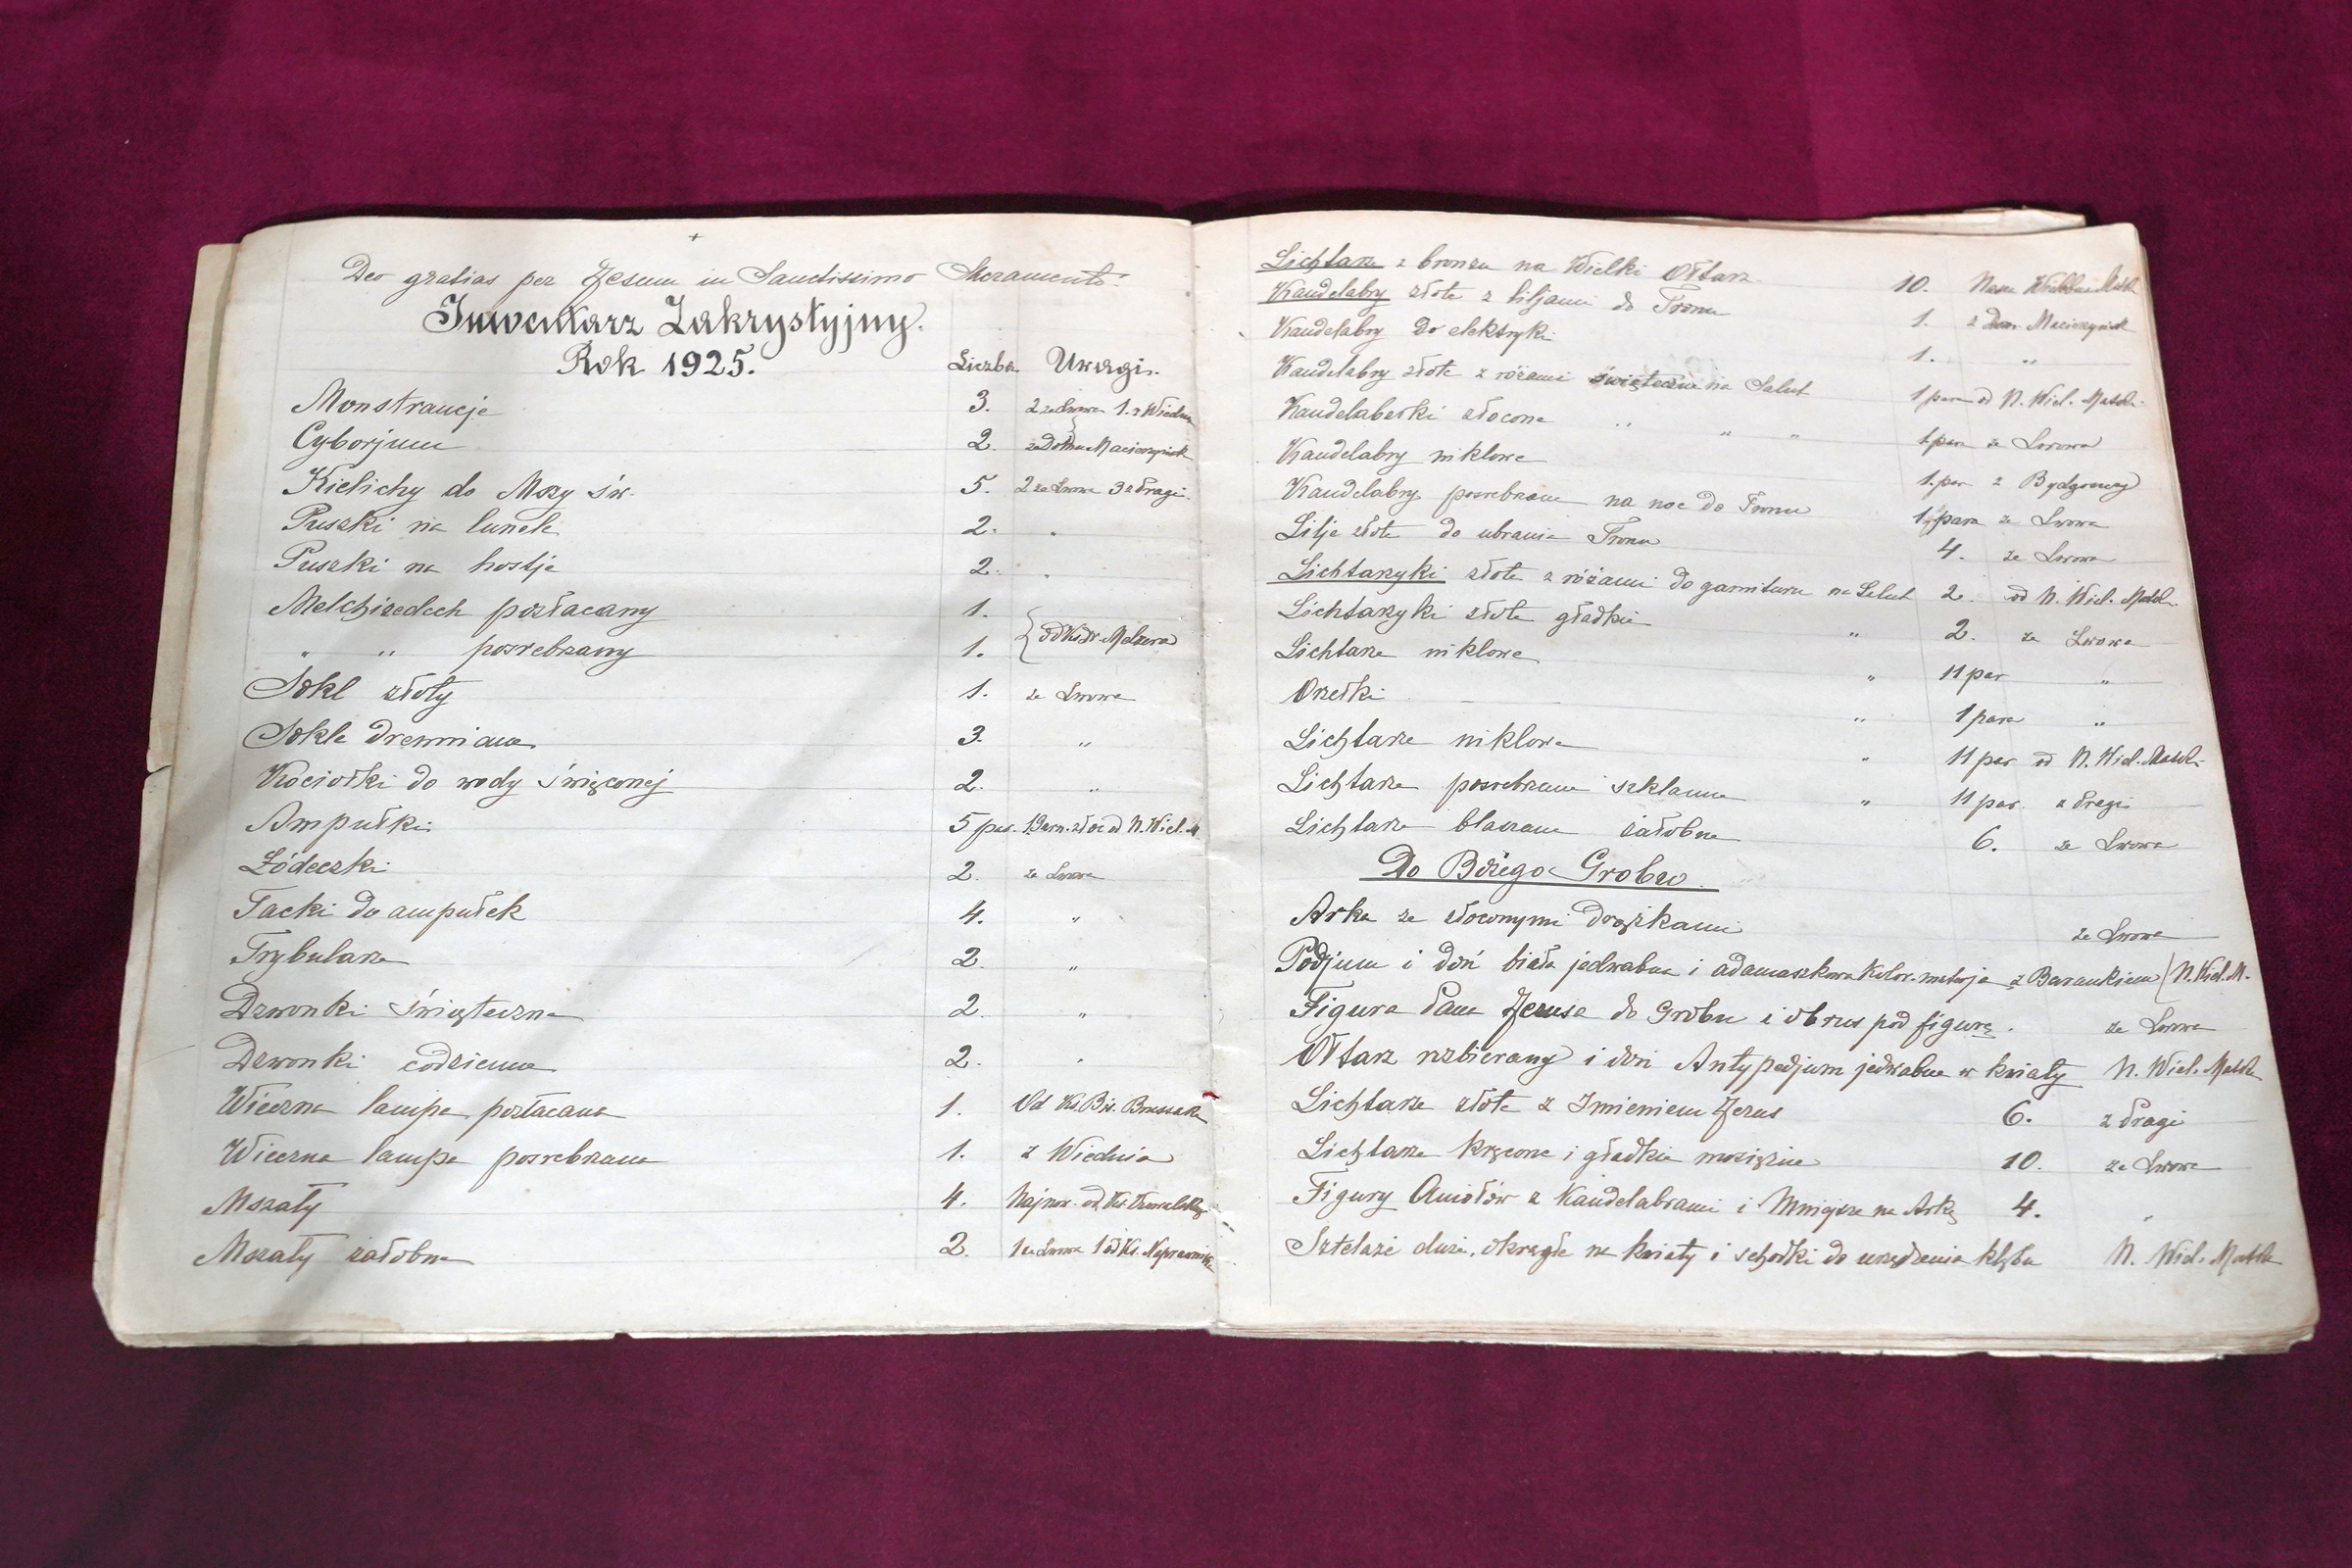 +
Deo gratias per Jesum in Sanctissimo Sacramento!
Inwentarz Zakrystyjny.
Rok 1925.
Liczba Uwagi.
Monstrancje 3. 2 ze Lwowa 1. z Wiednia
Cyborjum 2. z Domu Macierzyńsk
Kielichy do Mszy św. 5. 2 ze Lwowa 3 z Pragi.
Puszki na lunele 2. "
Puszki na hostje 2. "
Melchizedech pozłacany 1.
" " posrebrzany 1. od Ks. Dr. Melzera
Sokl złoty 1. ze Lwowa
Sokle drewniane 3. "
Kociołki do wody święconej 2. "
Ampułki 5 par. od N. Wiel. M
Łódeczki 2. ze Lwowa
Tacki do ampułek 4. "
Trybularze 2. "
Dzwonki świąteczne 2. "
Dzwonki codzienne 2. "
Wieczna lampa pozłacana 1. Od Ks. Bis.
Wieczna lampa posrebrzana 1. z Wiednia
Mszały 4. Najnow. od Ks. Kowalskiego
Mszały żałobne 2. 1 ze Lwowa 1 od Ks.
Lichtarze z bronzu na Wielki Ołtarz 10. Nasza Matka
Kandelabry złote z liljami do Tronu 1. z Dom. Macierzyńsk
Kandelabry do elektryki 1. "
Kandelabry złote z różami świąteczne na Salut 1 para od N. Wiel. Matki
Kandelaberki złocone " " " 1 para ze Lwowa
Kandelabry niklowe 1. par z Bydgoszczy
Kandelabry posrebrzane na noc do Tronu 1 para ze Lwowa
Lilje złote do ubrania Tronu 4. ze Lwowa
Lichtarzyki złote z różami do garnituru na Salut 2. od N. Wiel. Matki
Lichtarzyki złote gładkie " 2. ze Lwowa
Lichtarze niklowe " 11 par "
Orzełki " 1 para "
Lichtarze niklowe " 11 par od N. Wiel. Matki
Lichtarze posrebrzane szklanne " 11 par. z Pragi
Lichtarze blaszane żałobne 6. ze Lwowa
Do Bożego Grobu.
Arka ze złoconymi drążkami ze Lwowa
Podjum i doń biała jedwabna i adamaszkowa kolor. materja z Barankiem (N. Wiel. M.
Figura Pana Jezusa do Grobu i obrus pod figurę. ze Lwowa
Ołtarz rozbierany i doń Antypedjum jedwabne w kwiaty N. Wiel. Matka
Lichtarze złote z Imieniem Jezus 6. z Pragi
Lichtarze kręcone i gładkie mosiężne 10. ze Lwowa
Figury Aniołów z Kandelabrami i Mniejsze na Arkę 4. "
Sztelaże duże, okrągłe na kwiaty i schodki do urządzenia klębu N. Wiel. Matka